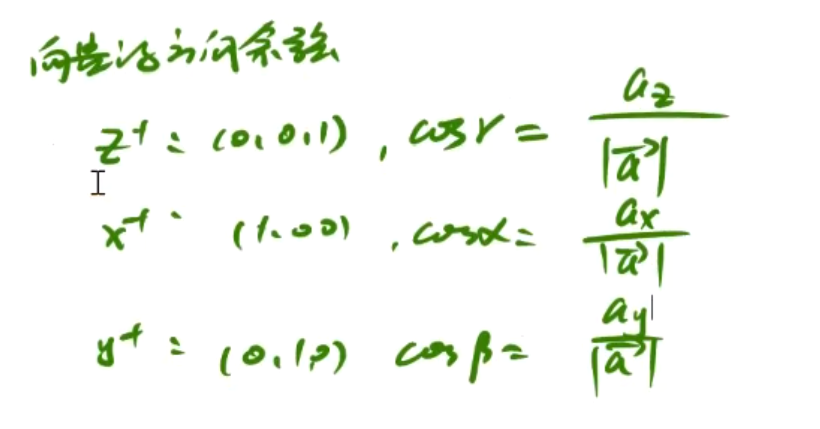 向量的方向余弦
z⁺: (0,0,1), cosγ = a_z / |a⃗|
x⁺: (1,0,0), cosα = a_x / |a⃗|
y⁺: (0,1,0) cosβ = a_y / |a⃗|